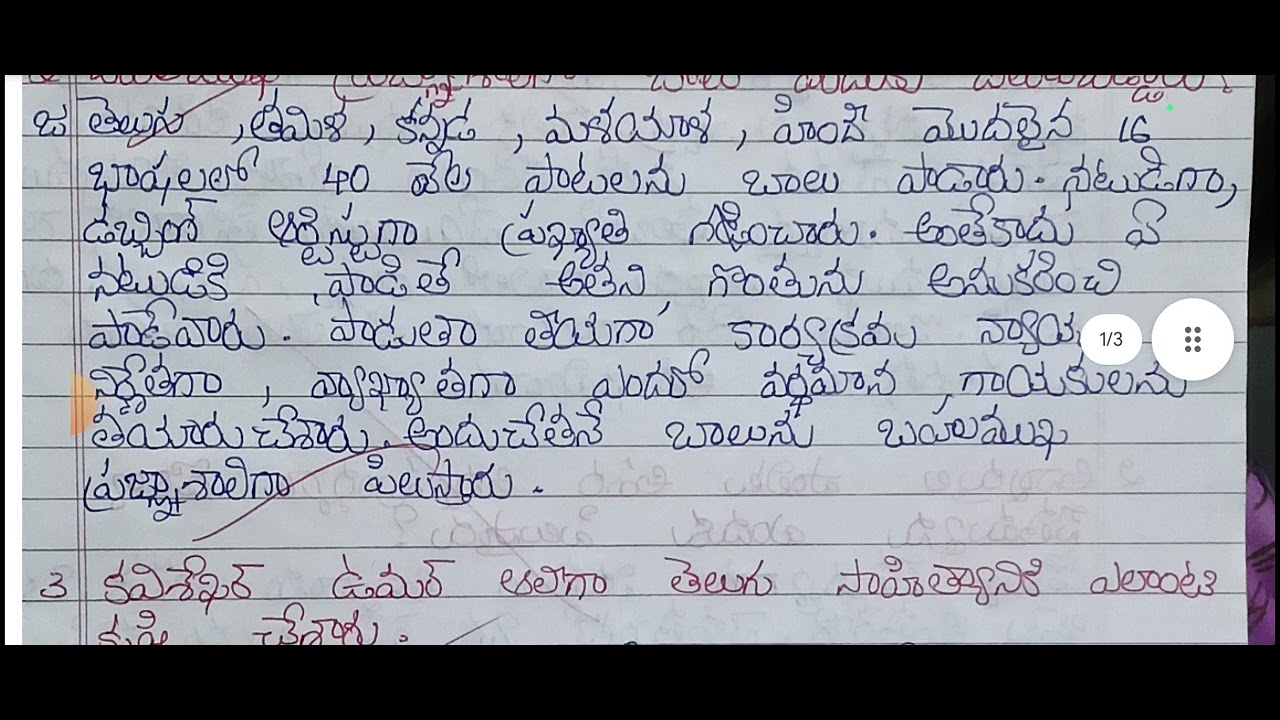 జ తెలుగు , తమిళ , కన్నడ , మళయాళ , హిందీ మొదలైన 16
భాషలలో 40 వేల పాటలను బాలు పాడారు. నటుడిగా,
డబ్బింగ్ ఆర్టిస్టుగా ప్రఖ్యాతి గడించారు. అంతేకాదు ఏ
నటుడికి పాడితే అతని గొంతును అనుకరించి
పాడేవారు. పాడుతా తీయగా కార్యక్రమ న్యాయ
నిర్ణేతగా , వ్యాఖ్యాతగా ఎందరో వర్ధమాన గాయకులను
తయారుచేశారు. అందుచేతనే బాలును బహుముఖ
ప్రజ్ఞాశాలిగా పిలుస్తారు .
3 కవిశేఖర్ ఉమర్ ఆలీగా తెలుగు సాహిత్యానికి ఎలాంటి
కృషి చేశారు.
1/3